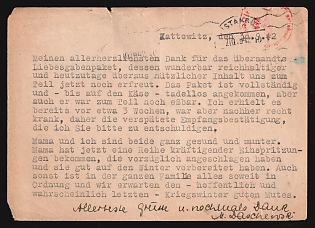 Kattowitz, den 30.9.42
Meinen allerherzlichsten Dank für das übersandte
Liebesgabenpaket, dessen wunderbar reichhaltiger
und heutzutage überaus nützlicher Inhalt uns zum
Teil jetzt noch erfreut. Das Paket ist vollständig
und - bis auf den Käse - tadellos angekommen, aber
auch er war zum Teil noch eßbar. Ich erhielt es
bereits vor etwa 3 Wochen, war aber nachher recht
krank, daher die verspätete Empfangsbestätigung,
die ich Sie bitte zu entschuldigen.
Mama und ich sind beide ganz gesund und munter.
Mama hat jetzt eine Reihe kräftigender Einspritzun-
gen bekommen, die vorzüglich angeschlagen haben
und sie gut auf den Winter vorbereitet haben. Auch
sonst ist in der ganzen Familie alles soweit in
Ordnung und wir erwarten den - hoffentlich und
wahrscheinlich letzten - Kriegswinter guten Mutes.
Allerbeste Grüsse u. nochmals Dank